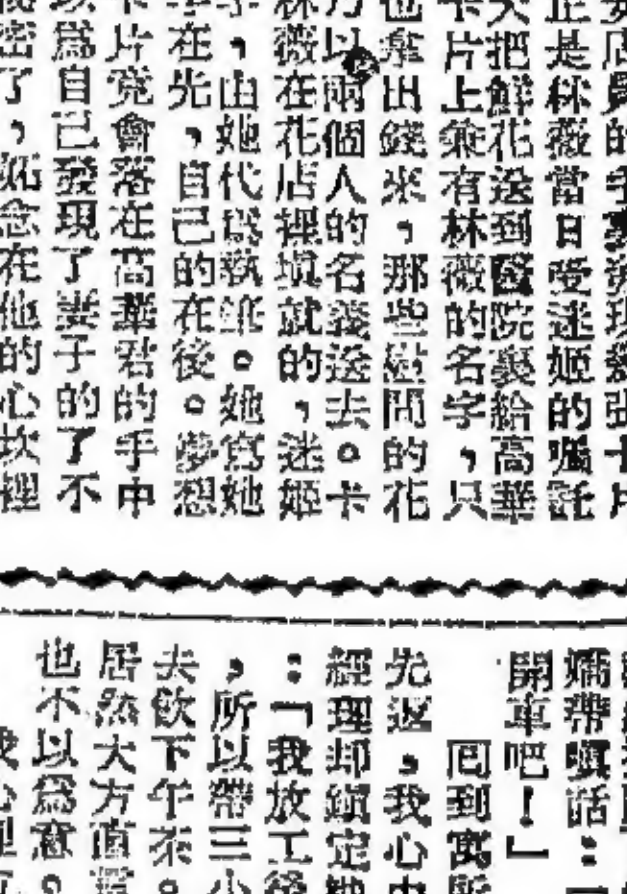 店員的手裏發現幾張卡片
正是林薇當日受迷姬的囑託
天把鮮花送到醫院裏給高華
卡片上兼有林薇的名字，只
也拿出錢來，那些樹間的花
方以兩個人的名義送去。卡
林薇在花店裡填就的，迷姬
字，由她代爲執筆。她寫她
字在光，自己的在後。夢想
卡片竟會落在高華君的手中
以爲自己發現了妻子的了不
密了，妬念在他的心坎裡
嬌帶嗔話：「
開車吧！」
囘到寓所
先返，我心中
經理却鎖定她
：「我放工後
，所以帶三小
去飲下午茶。
居然大方直
也不以爲意。
我心理